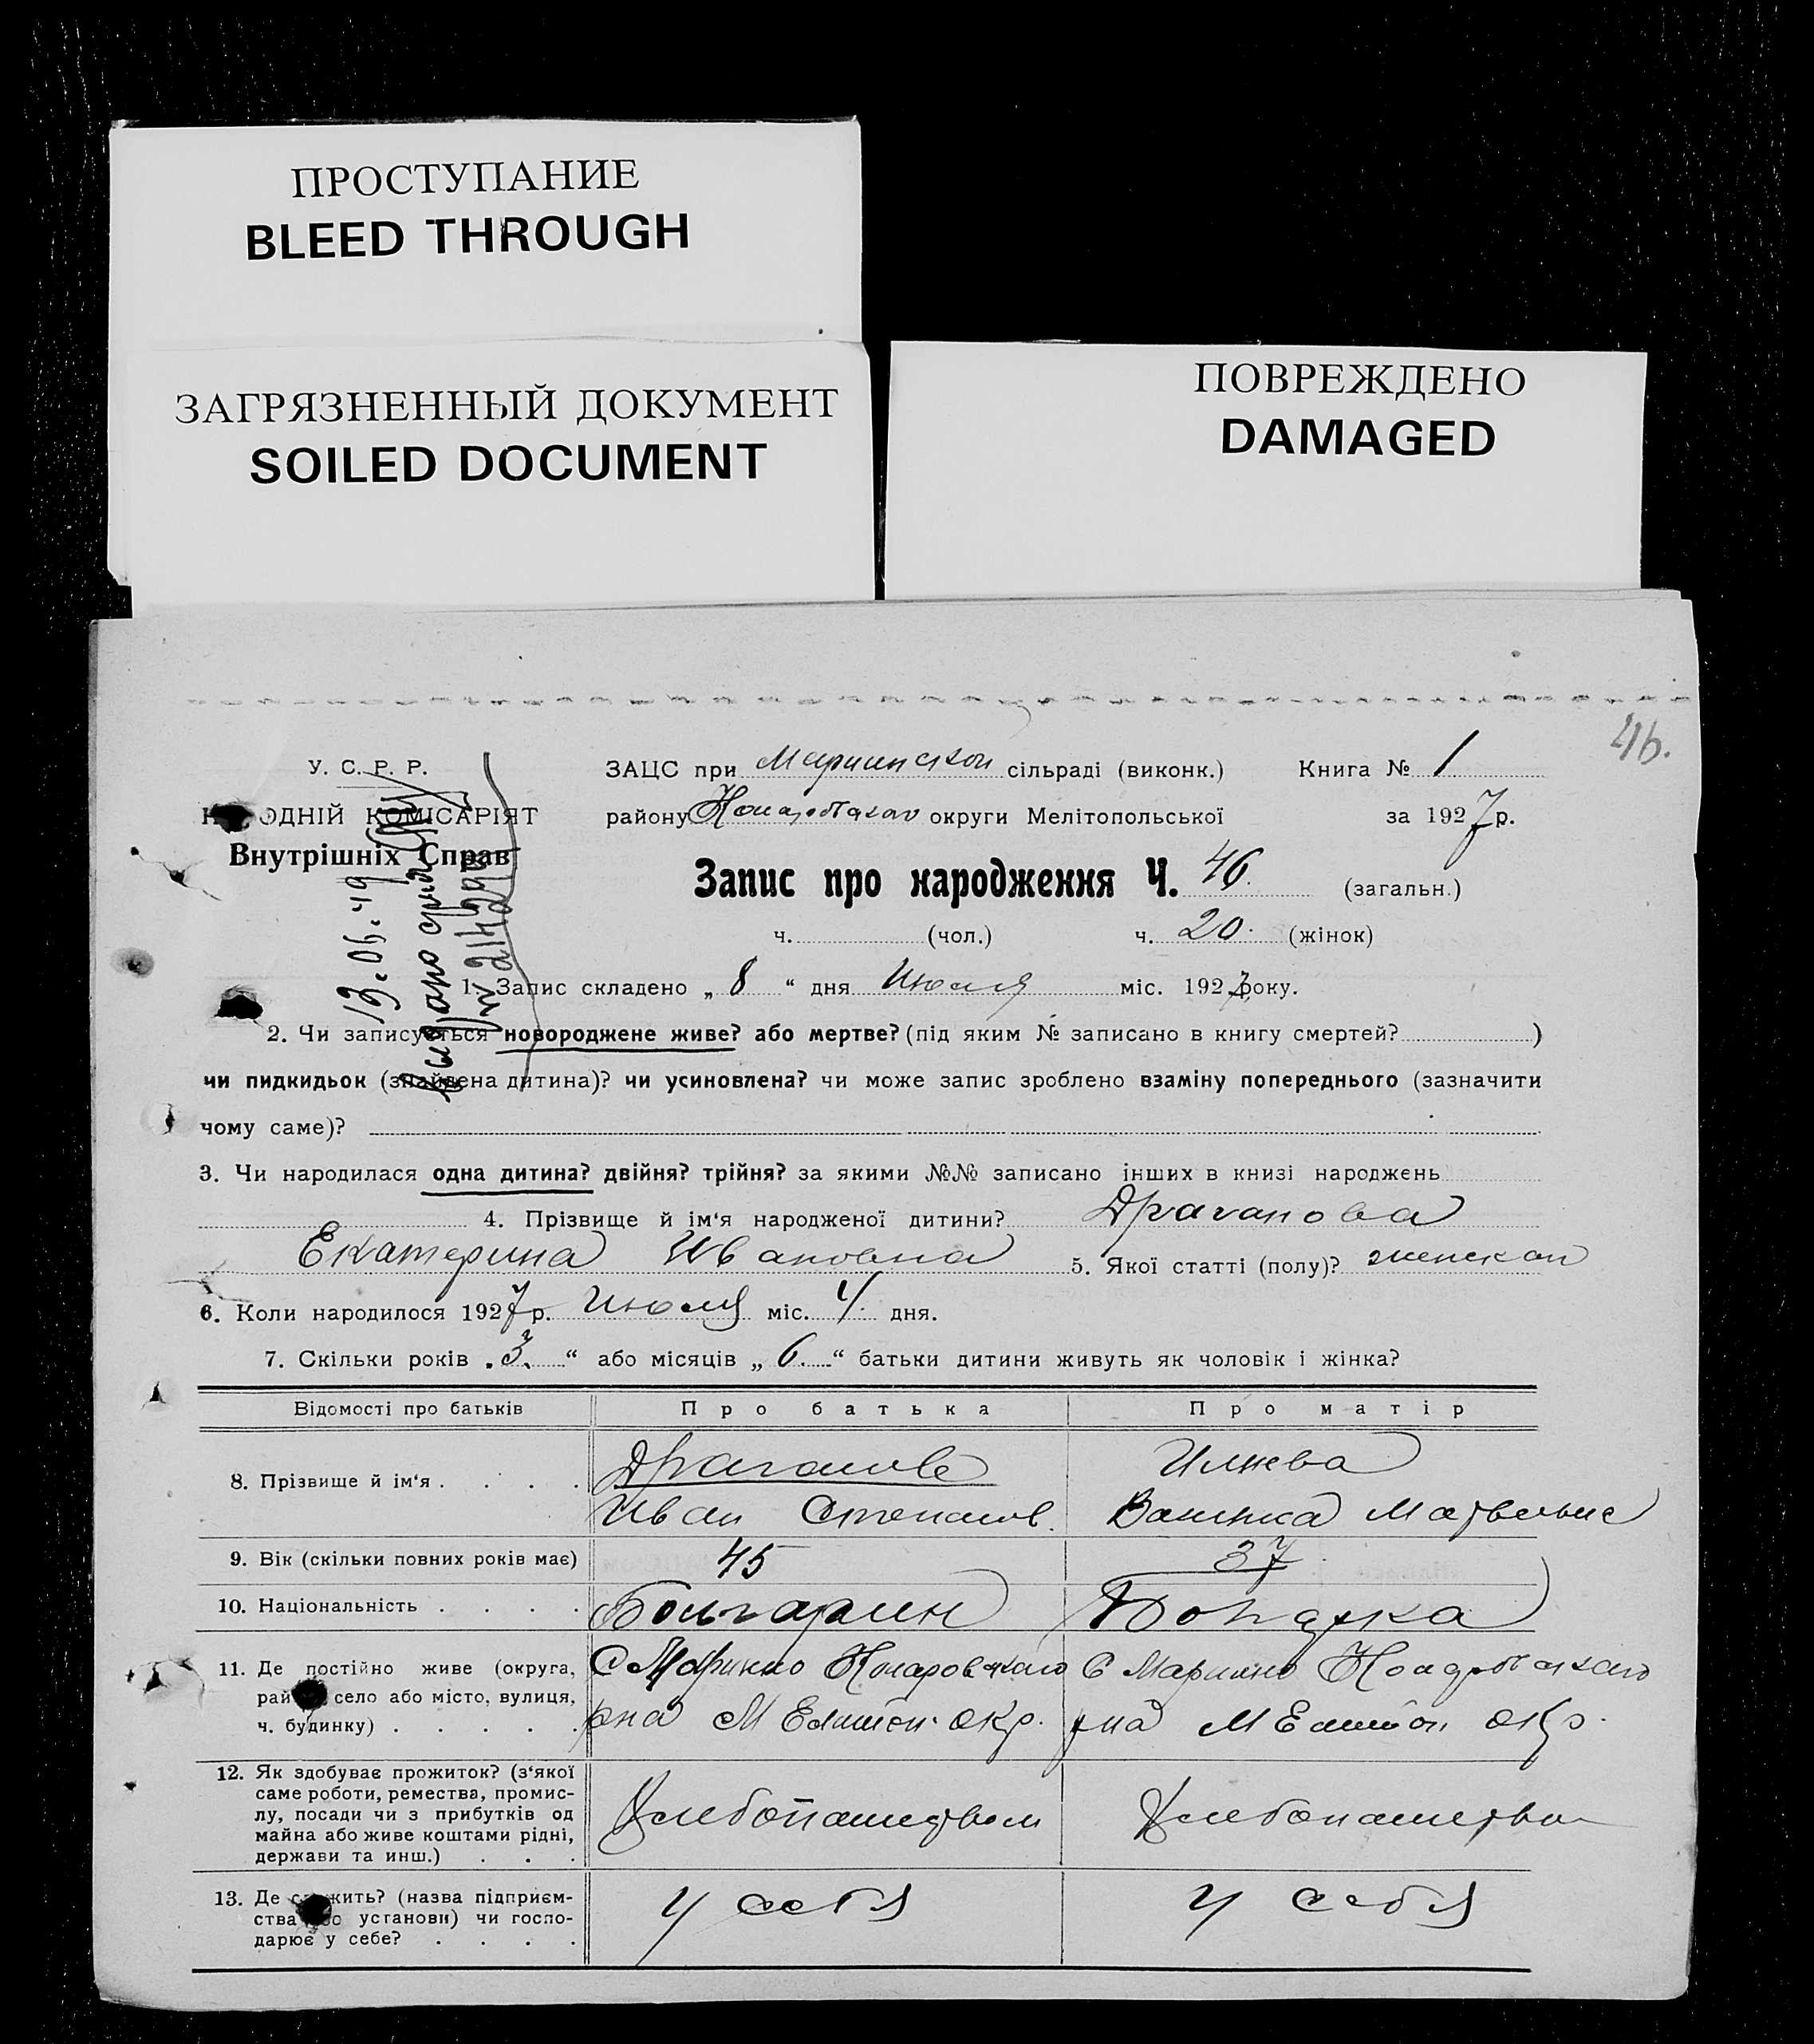 ПРОСТУПАНИЕ
BLEED THROUGH
ЗАГРЯЗНЕННЫЙ ДОКУМЕНТ
SOILED DOCUMENT
ПОВРЕЖДЕНО
DAMAGED
46.
У. С. Р. Р.
НАРОДНІЙ КОМІСАРІЯТ
Внутрішніх Справ
13.06.49
Выдано
ЗАЦС при Мариинском сільраді (виконк.) Книга № 1
району округи Мелітопольської за 1927 р.
Запис про народження Ч. 46. (загальн.)
ч. (чол.) ч. 20. (жінок)
1. Запис складено „ 8 “ дня Июля міс. 1927 року.
2. Чи записується новороджене живе? або мертве? (під яким № записано в книгу смертей? )
чи пидкидьок (знайдена дитина)? чи усиновлена? чи може запис зроблено взаміну попереднього (зазначити
чому саме)?
3. Чи народилася одна дитина? двійня? трійня? за якими №№ записано інших в книзі народжень
4. Прізвище й ім‘я народженої дитини? Драганова
Екатерина Ивановна 5. Якої статті (полу)? женскоп
6. Коли народилося 1927 р. Июля міс. 4. дня.
7. Скільки років „ 3. “ або місяців „ 6. “ батьки дитини живуть як чоловік і жінка?
Відомості про батьків Про батька Про матір
8. Прізвище й ім‘я . . . . Драганов Илиева
Иван Степанов. Матвеевна
9. Вік (скільки повних років має) 45 37
10. Національність . . . . Болгарин Болгарка
11. Де постійно живе (округа,
район, село або місто, вулиця,
ч. будинку) . . . . .
С Марино С Марино
рна Мелитоп. окр. рна Мелитоп окр.
12. Як здобуває прожиток? (з‘якої
саме роботи, ремества, промис-
лу, посади чи з прибутків од
майна або живе коштами рідні,
держави та инш.) . . .
Хлебопашеством Хлебопашество
13. Де служить? (назва підприєм-
ства або установи) чи госпо-
дарює у себе? . . . .
у себя у себя